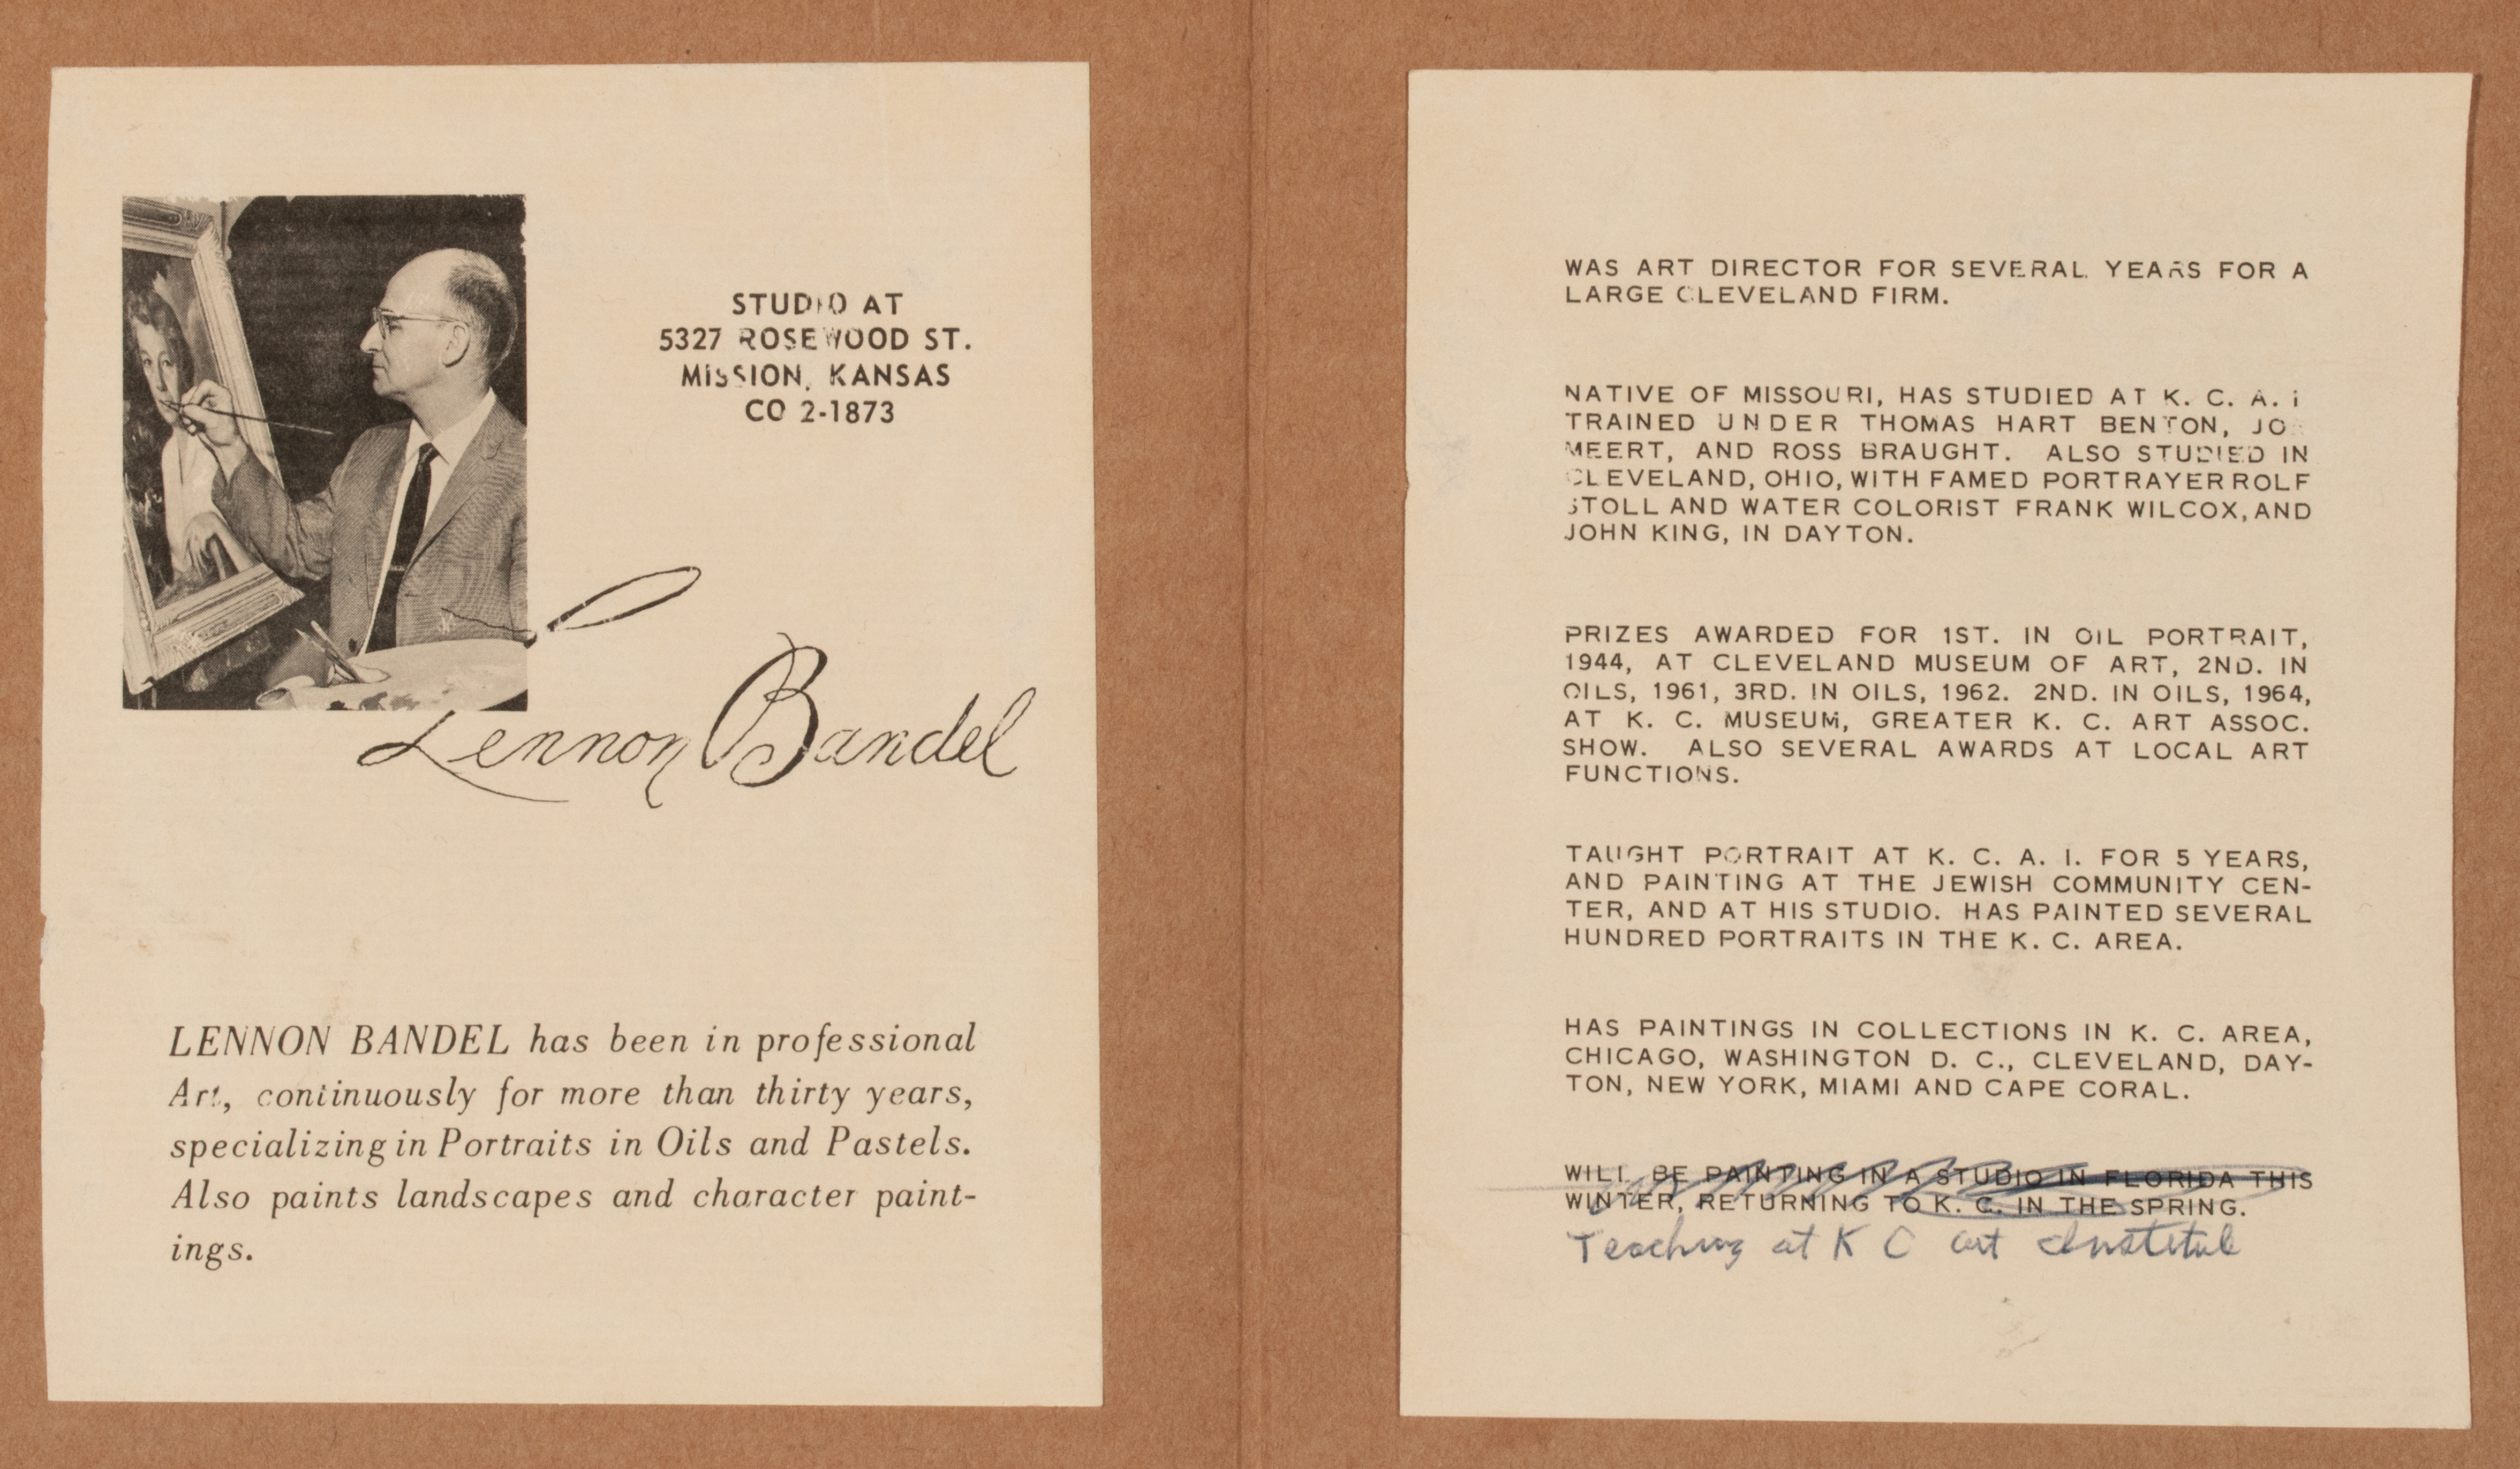 STUDIO AT
5327 ROSEWOOD ST.
MISSION, KANSAS
CO 2-1873
Lennon Bandel
LENNON BANDEL has been in professional
Art, continuously for more than thirty years,
specializing in Portraits in Oils and Pastels.
Also paints landscapes and character paint-
ings.
WAS ART DIRECTOR FOR SEVERAL YEARS FOR A
LARGE CLEVELAND FIRM.
NATIVE OF MISSOURI, HAS STUDIED AT K. C. A. I
TRAINED UNDER THOMAS HART BENTON, JO
MEERT, AND ROSS BRAUGHT. ALSO STUDIED IN
CLEVELAND, OHIO, WITH FAMED PORTRAYER ROLF
STOLL AND WATER COLORIST FRANK WILCOX, AND
JOHN KING, IN DAYTON.
PRIZES AWARDED FOR 1ST. IN OIL PORTRAIT,
1944, AT CLEVELAND MUSEUM OF ART, 2ND. IN
OILS, 1961, 3RD. IN OILS, 1962. 2ND. IN OILS, 1964,
AT K. C. MUSEUM, GREATER K. C. ART ASSOC.
SHOW. ALSO SEVERAL AWARDS AT LOCAL ART
FUNCTIONS.
TAUGHT PORTRAIT AT K. C. A. I. FOR 5 YEARS,
AND PAINTING AT THE JEWISH COMMUNITY CEN-
TER, AND AT HIS STUDIO. HAS PAINTED SEVERAL
HUNDRED PORTRAITS IN THE K. C. AREA.
HAS PAINTINGS IN COLLECTIONS IN K. C. AREA,
CHICAGO, WASHINGTON D. C., CLEVELAND, DAY-
TON, NEW YORK, MIAMI AND CAPE CORAL.
WILL BE PAINTING IN A STUDIO IN FLORIDA THIS
WINTER, RETURNING TO K. C. IN THE SPRING.
Teaching at K C art Institute